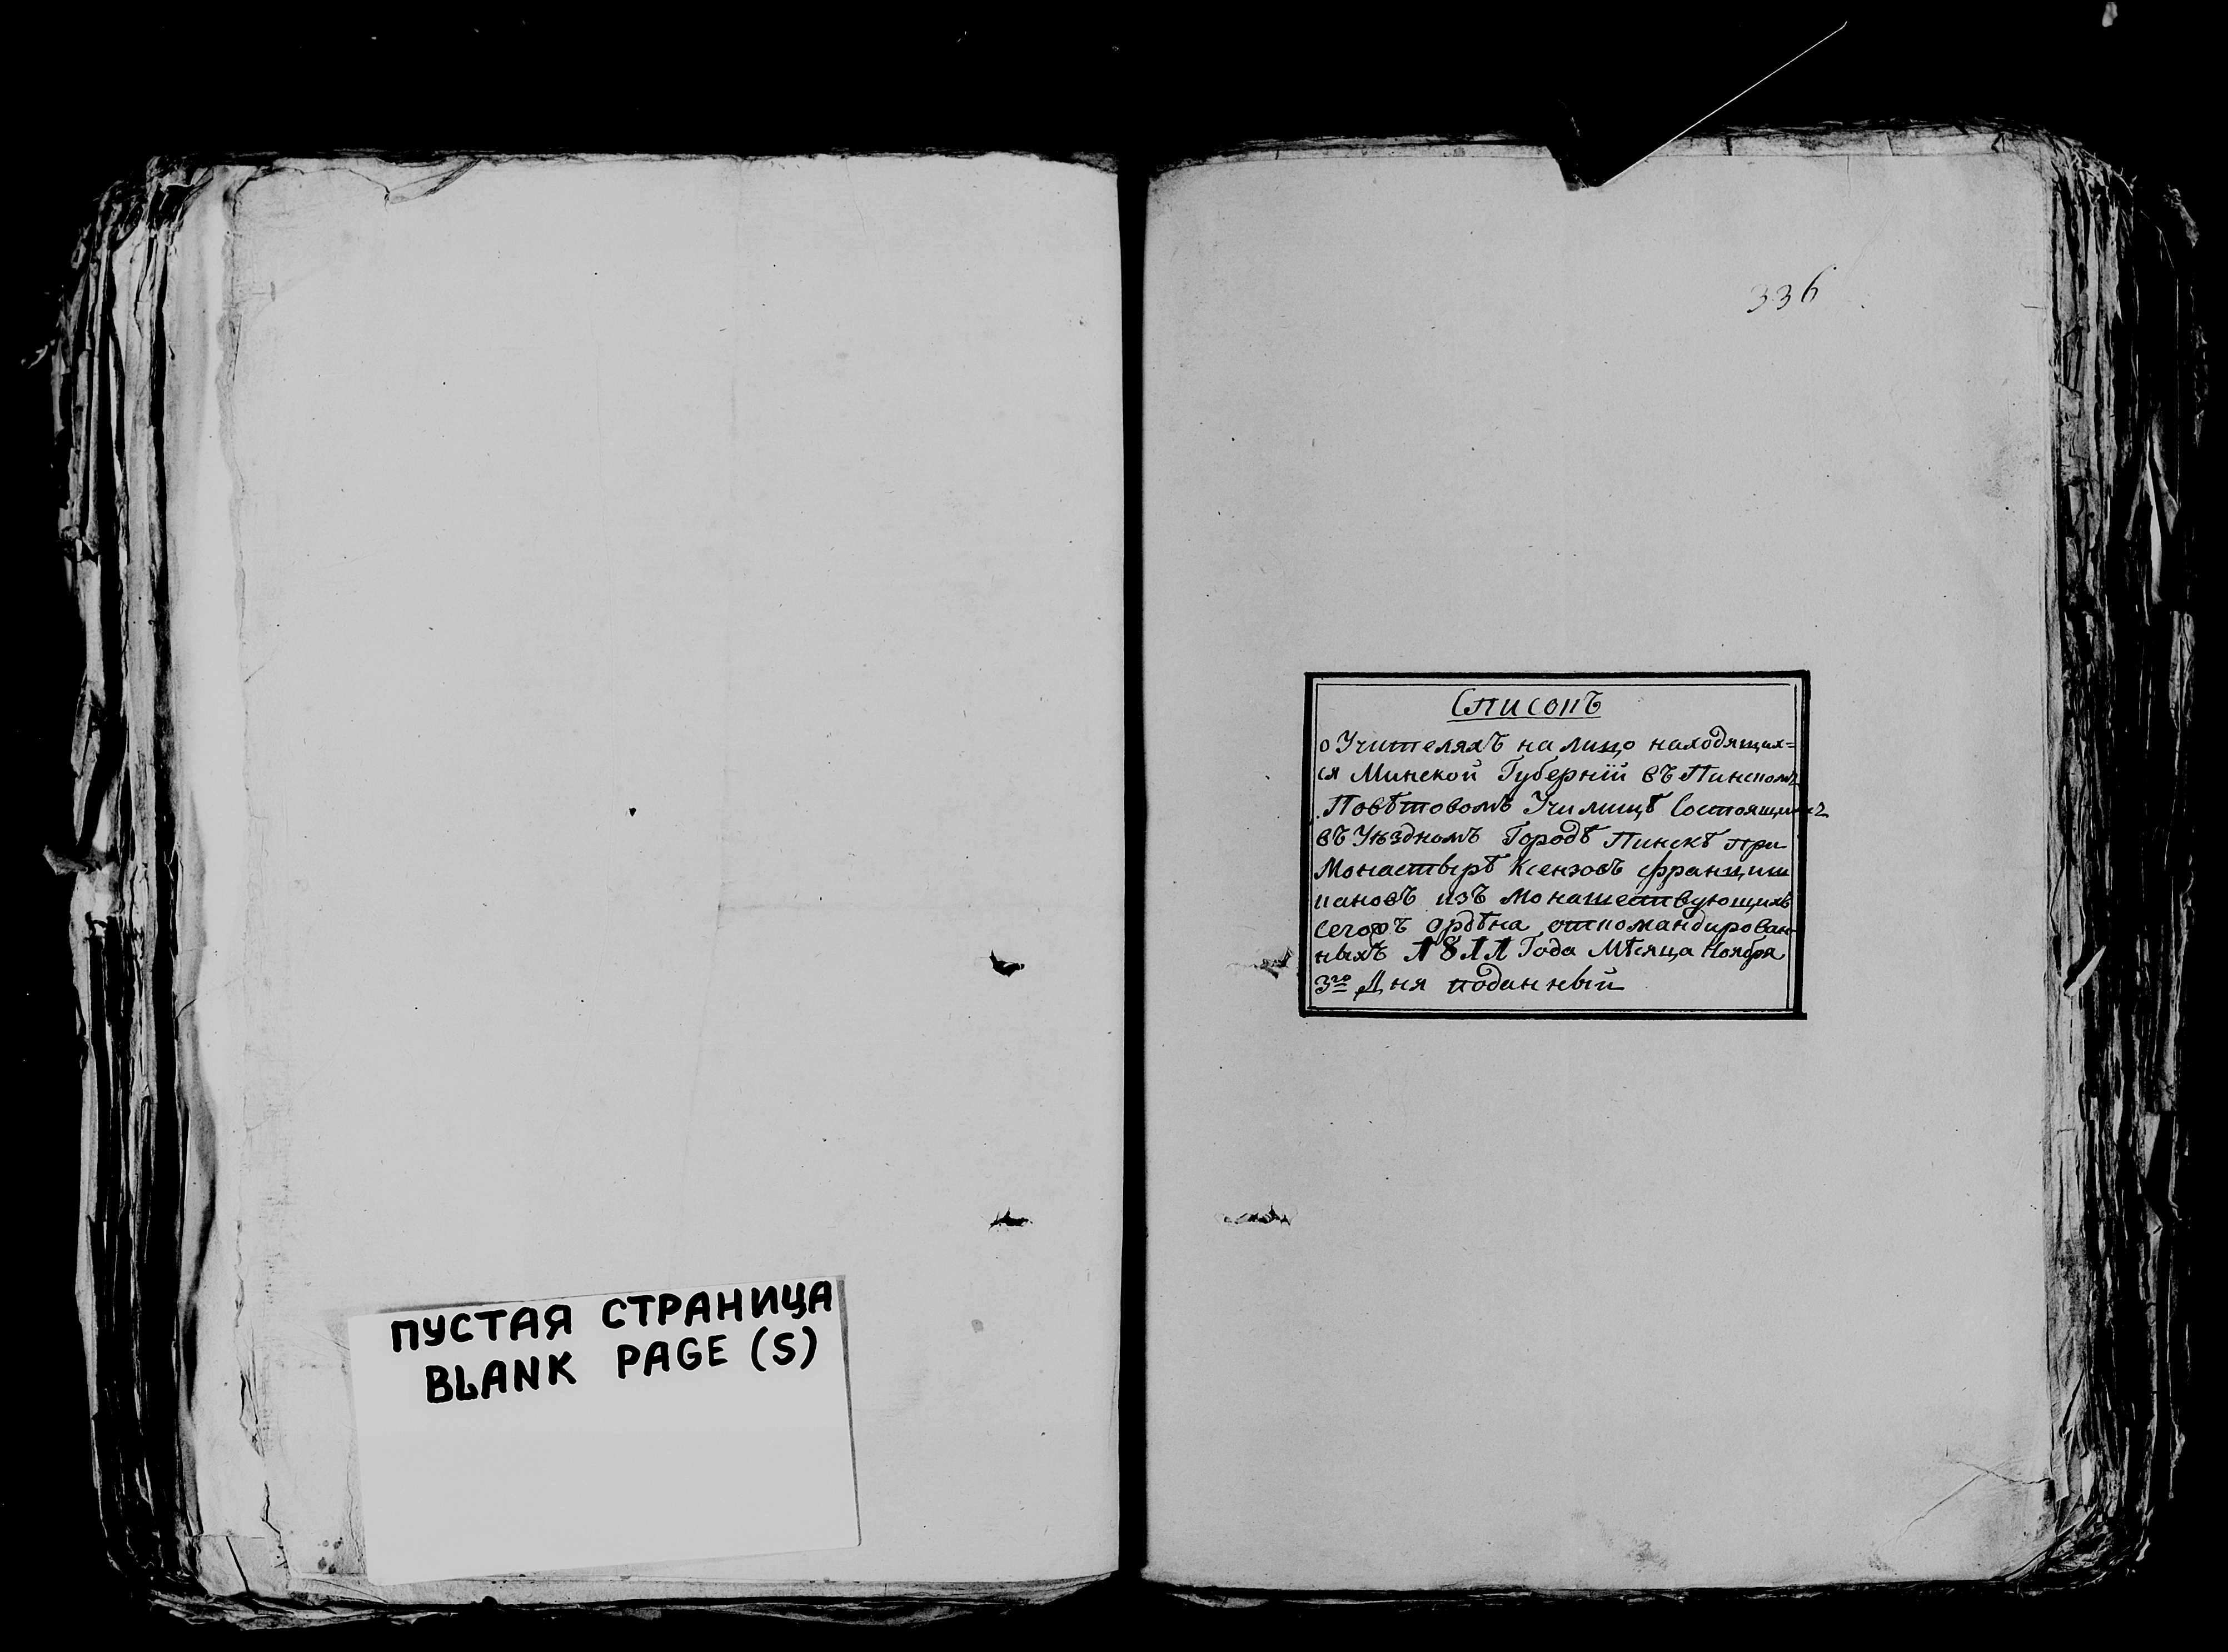 ПУСТАЯ СТРАНИЦА
BLANK PAGE (S)
336
Списокъ
о Учителяхъ на лицо находящих=
ся Минской Губернїи въ Пинскомъ
Повѣтовомъ Училищѣ Состоящихъ
въ Уѣздномъ Городѣ Пинскѣ при
Монастырѣ Ксензовъ Франциш
кановъ изъ Монашествующихъ
сегожъ Ордѣна откомандирован-
ныхъ 1811 Года Мѣсяца Ноября
3го Дня поданный